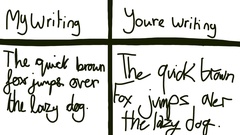 My writing
Youre writing
The quick brown
fox jumps over
the lazy dog.
The quick brown
fox jumps over
the lazy dog.